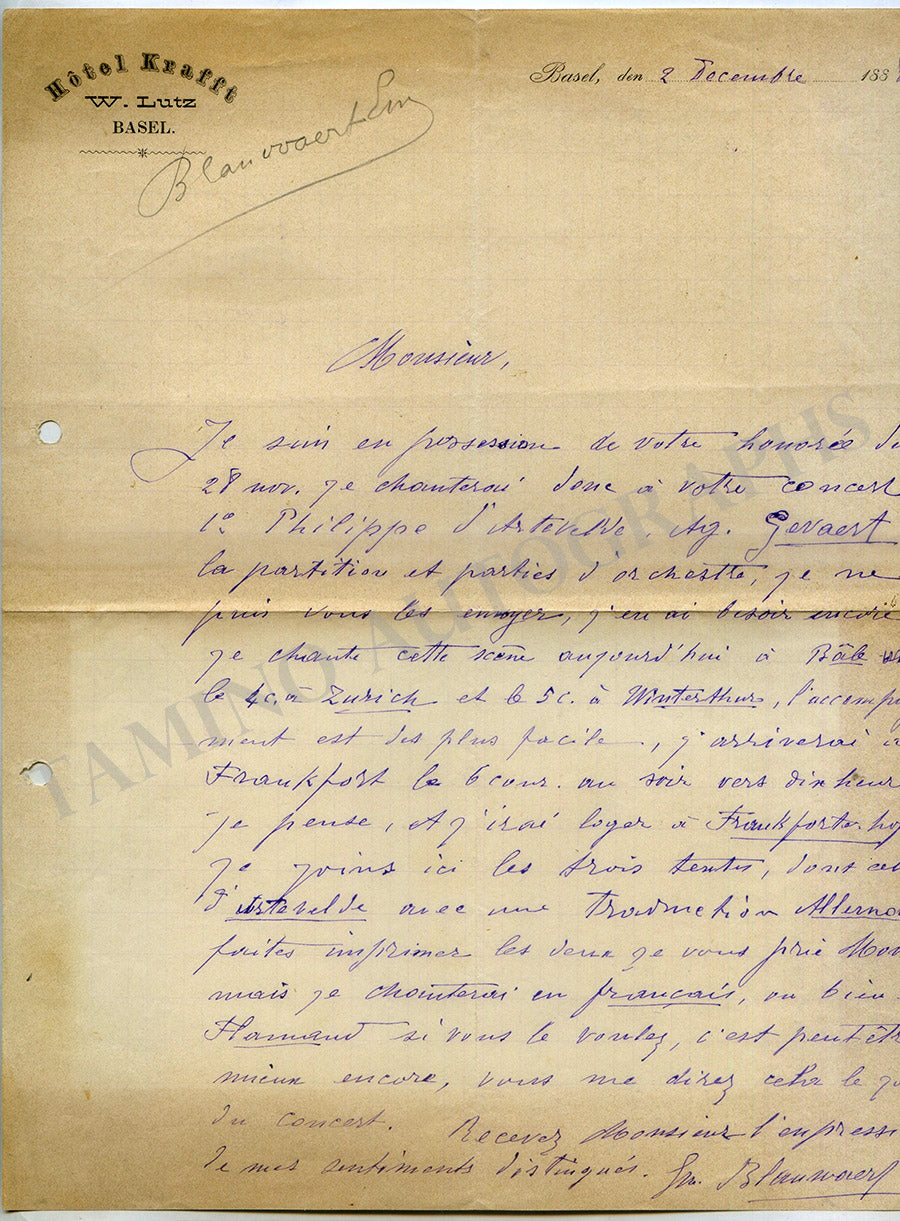 Hôtel Krafft
W. Lutz
BASEL.
Basel, den 2 Decembre 188
Blauwaert Em
Monsieur,
Je suis en possession de votre honorée du
28 nov. je chanterai donc à votre concert
1º Philippe d'Artevelde. Ag. Gevaert
la partition et parties d'orchestre, je ne
puis vous les envoyer, j'en ai besoin encore
je chante cette scène aujourd'hui à Bâle
le 4c. à Zurich et le 5c. à Winterthur, l'accompag
ment est des plus facile, j'arriverai à
Frankfort le 6 cour. au soir vers dix heur
je pense, et j'irai loger à Frankforter-hof
Je joins ici les trois textes, dont cel
d'Artevelde avec une Traduction Alleman
faites imprimer les deux je vous prie Mon
mais je chanterai en français, ou bien
Flamand si vous le voulez, c'est peut êtr
mieux encore, vous me direz cela le jo
du concert. Recevez Monsieur l'expressi
de mes sentiments distingués. Em. Blauwaert
TAMINO AUTOGRAPHS